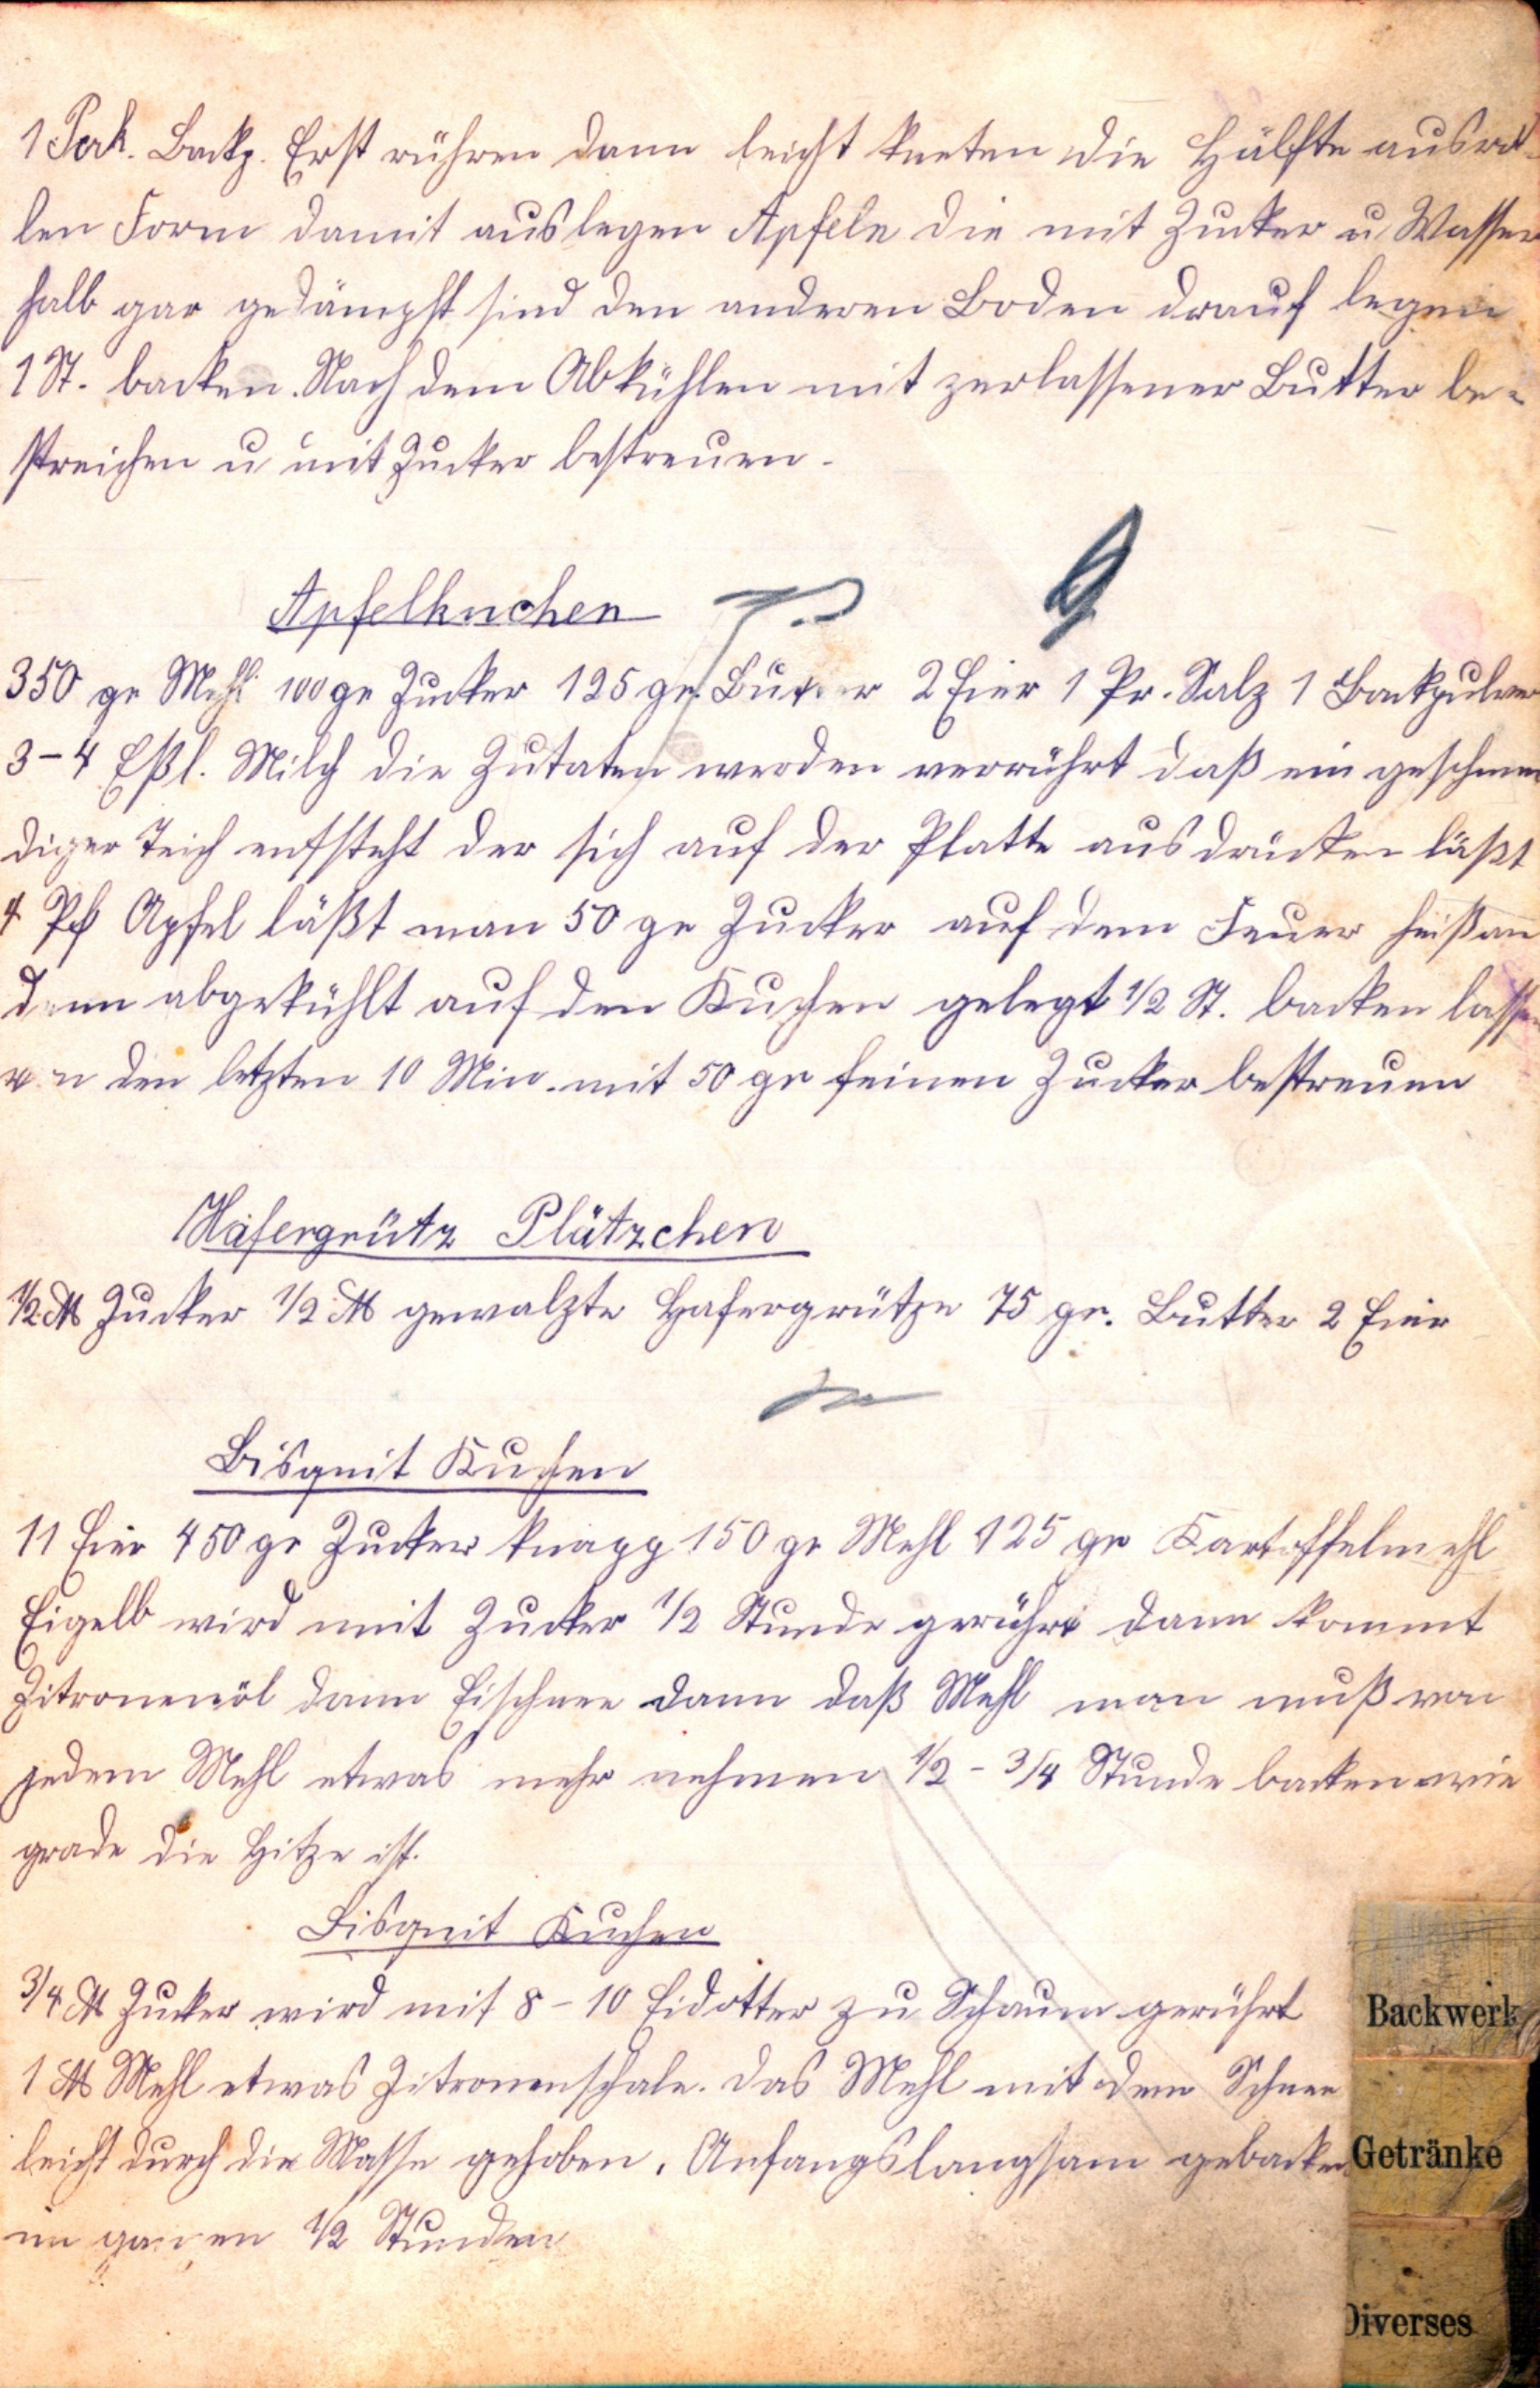 1 Pack. Backp. Erst rühren dann leicht kneten die Hälfte ausrol-
len Form damit auslegen Apfeln die mit Zucker u Wasser
halb gar gedämpft sind den anderen Boden drauf legen
1 St. backen. Nach dem Abkühlen mit zerlassener Butter be-
streichen u mit Zucker bestreuen.
Apfelkuchen
350 gr Mehl 100 gr Zucker 125 gr. Butter 2 Eier 1 Pr. Salz 1 Backpulver
3-4 Eßl. Milch die Zutaten werden verrührt daß ein geschmei
diger Teich entsteht der sich auf der Platte ausdrücken läßt
4 Pf Apfel läßt man 50 gr Zucker auf dem Feuer heiß an
dann abgekühlt auf den Kuchen gelegt 1/2 St. backen lassen
den letzten 10 Min. mit 50 gr feinen Zucker bestreuen
Hafergrütz Plätzchen
1/2 ℔ Zucker 1/2 ℔ gewalzte Hafergrütze 75 gr. Butter 2 Eier
Bisquit Kuchen
11 Eier 450 gr Zucker knapp 150 gr Mehl 125 gr Kartoffelmehl
Eigelb wird mit Zucker 1/2 Stunde gerührt dann kommt
Zitronenöl dann Eischnee dann daß Mehl man muß von
jedem Mehl etwas mehr nehmen 1/2 - 3/4 Stunde backen wie
grade die Hitze ist.
Bisquit Kuchen
3/4 ℔ Zucker wird mit 8-10 Eidotter zu Schaum gerührt
1 ℔ Mehl etwas Zitronenschale. Das Mehl mit dem Schnee
leicht durch die Masse gehoben. Anfangs langsam gebacken
im ganzen 1/2 Stunden
Backwerk
Getränke
Diverses